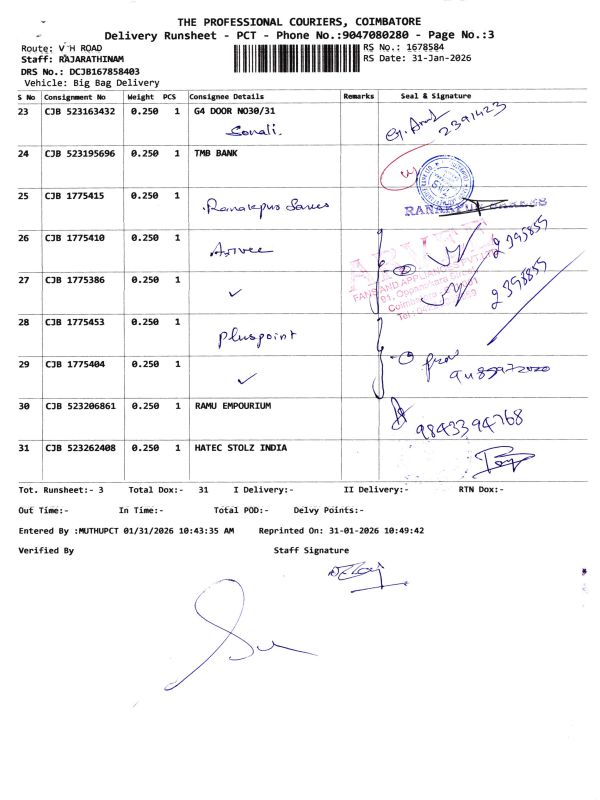 THE PROFESSIONAL COURIERS, COIMBATORE
Delivery Runsheet - PCT - Phone No.:9047080280 - Page No.:3
Route: V H ROAD
RS No.: 1678584
Staff: RAJARATHINAM
RS Date: 31-Jan-2026
DRS No.: DCJB167858403
Vehicle: Big Bag Delivery
S No Consignment No Weight PCS Consignee Details Remarks Seal & Signature
23 CJB 523163432 0.250 1 G4 DOOR NO30/31
Sonali. 2391423
24 CJB 523195696 0.250 1 TMB BANK
25 CJB 1775415 0.250 1
26 CJB 1775410 0.250 1 2395855
27 CJB 1775386 0.250 1 ✓ 2395855
FANS AND APPLIANCES PVT LTD
28 CJB 1775453 0.250 1 pluspoint
29 CJB 1775404 0.250 1 ✓
30 CJB 523206861 0.250 1 RAMU EMPOURIUM 9843394768
31 CJB 523262408 0.250 1 HATEC STOLZ INDIA
Tot. Runsheet:- 3 Total Dox:- 31 I Delivery:- II Delivery:- RTN Dox:-
Out Time:- In Time:- Total POD:- Delvy Points:-
Entered By :MUTHUPCT 01/31/2026 10:43:35 AM Reprinted On: 31-01-2026 10:49:42
Verified By Staff Signature